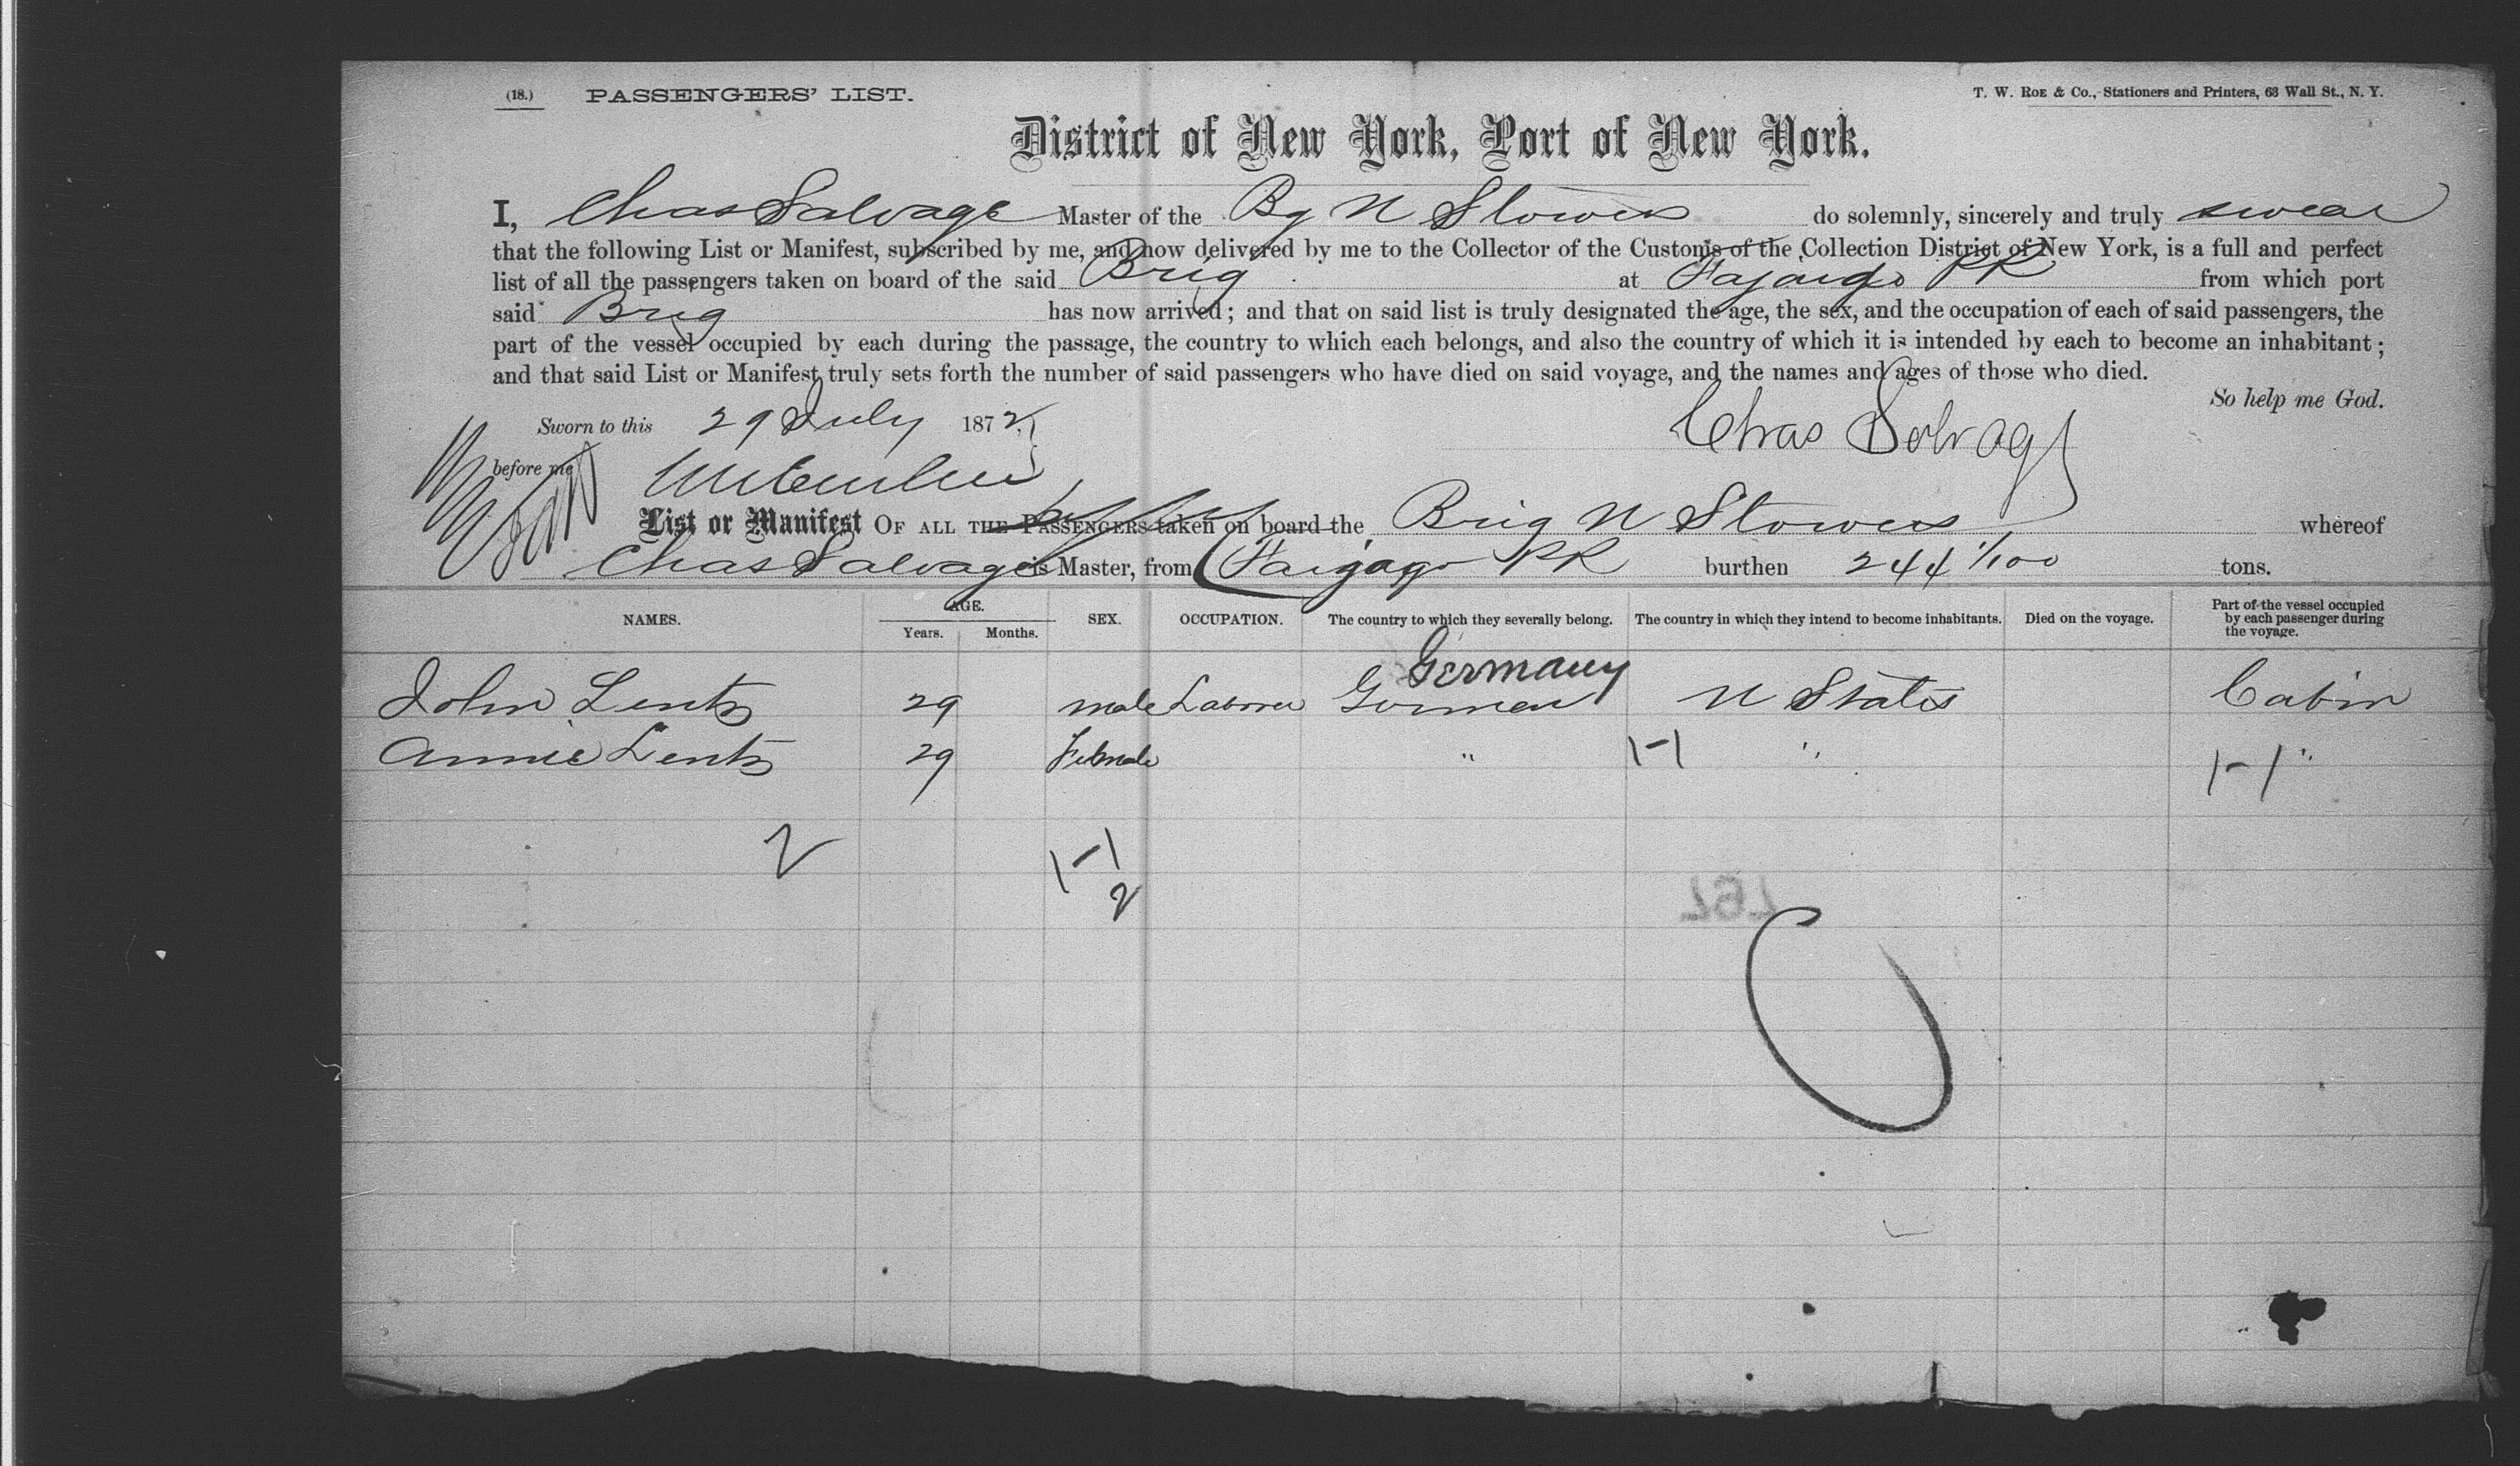 (18.) PASSENGERS' LIST. T. W. ROE & Co., Stationers and Printers, 63 Wall St., N. Y.
District of New York, Port of New York.
I, Chas Salvage Master of the Bg N Stowers do solemnly, sincerely and truly swear
that the following List or Manifest, subscribed by me, and now delivered by me to the Collector of the Customs of the Collection District of New York, is a full and perfect
list of all the passengers taken on board of the said Brig at Fajardo PR from which port
said Brig has now arrived; and that on said list is truly designated the age, the sex, and the occupation of each of said passengers, the
part of the vessel occupied by each during the passage, the country to which each belongs, and also the country of which it is intended by each to become an inhabitant;
and that said List or Manifest truly sets forth the number of said passengers who have died on said voyage, and the names and ages of those who died.
So help me God.
Sworn to this 29 July 1872 Chas Salvage
before me
List or Manifest OF ALL THE PASSENGERS taken on board the Brig N Stowers whereof
Chas Salvage is Master, from Faigago PR burthen 244 1/100 tons.
NAMES. AGE. SEX. OCCUPATION. The country to which they severally belong. The country in which they intend to become inhabitants. Died on the voyage. Part of the vessel occupied by each passenger during the voyage.
Years. Months.
Germany
John Lentz 29 male Laborer German U States Cabin
Annie Lentz 29 Female " 1-1 " 1-1 "
2 1-1
2